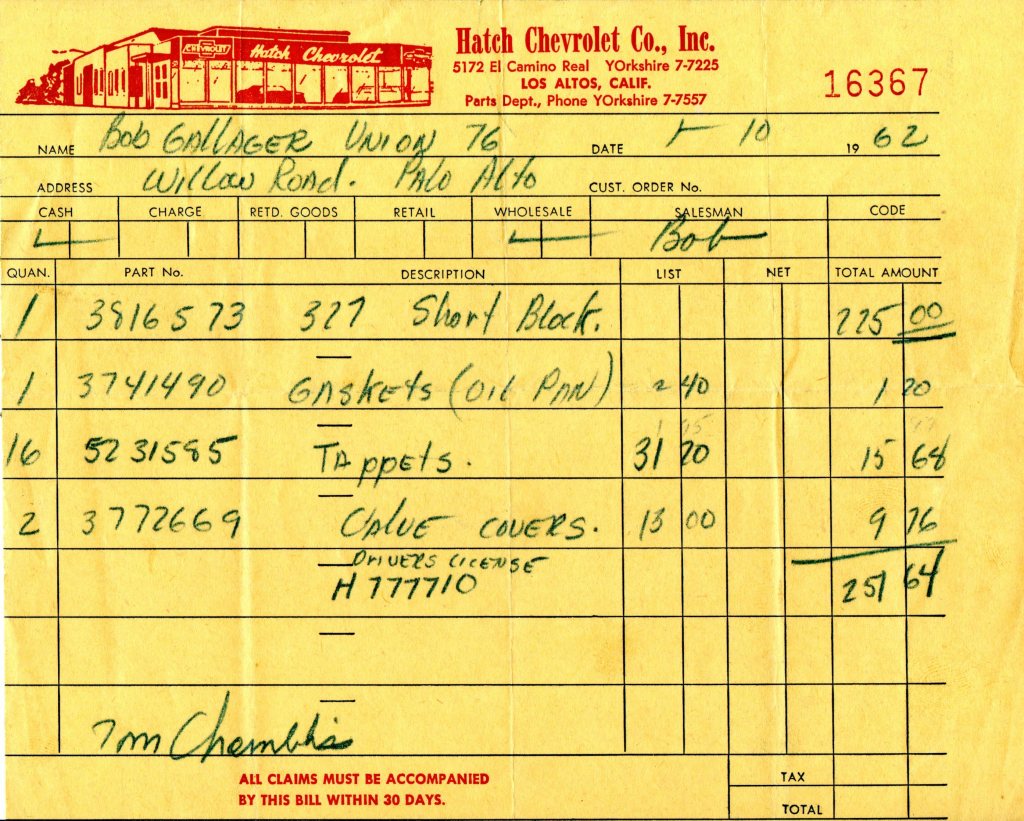 CHEVROLET Hatch Chevrolet
Hatch Chevrolet Co., Inc.
5172 El Camino Real YOrkshire 7-7225
LOS ALTOS, CALIF.
Parts Dept., Phone YOrkshire 7-7557
16367
NAME Bob GALLAGER UNION 76 DATE 10 19 62
ADDRESS Willow Road. PALO Alto CUST. ORDER No.
CASH CHARGE RETD. GOODS RETAIL WHOLESALE SALESMAN CODE
Bob
QUAN. PART No. DESCRIPTION LIST NET TOTAL AMOUNT
1 3816573 327 Short Block. 225 00
1 3741490 GASkets (OIL PAN) 2 40 1 20
16 5231585 TAppets. 31 20 15 68
2 3772669 VALUE COVERS. 13 00 9 76
DRIVERS LICENSE
H777710 251 64
Tom
ALL CLAIMS MUST BE ACCOMPANIED
BY THIS BILL WITHIN 30 DAYS.
TAX
TOTAL